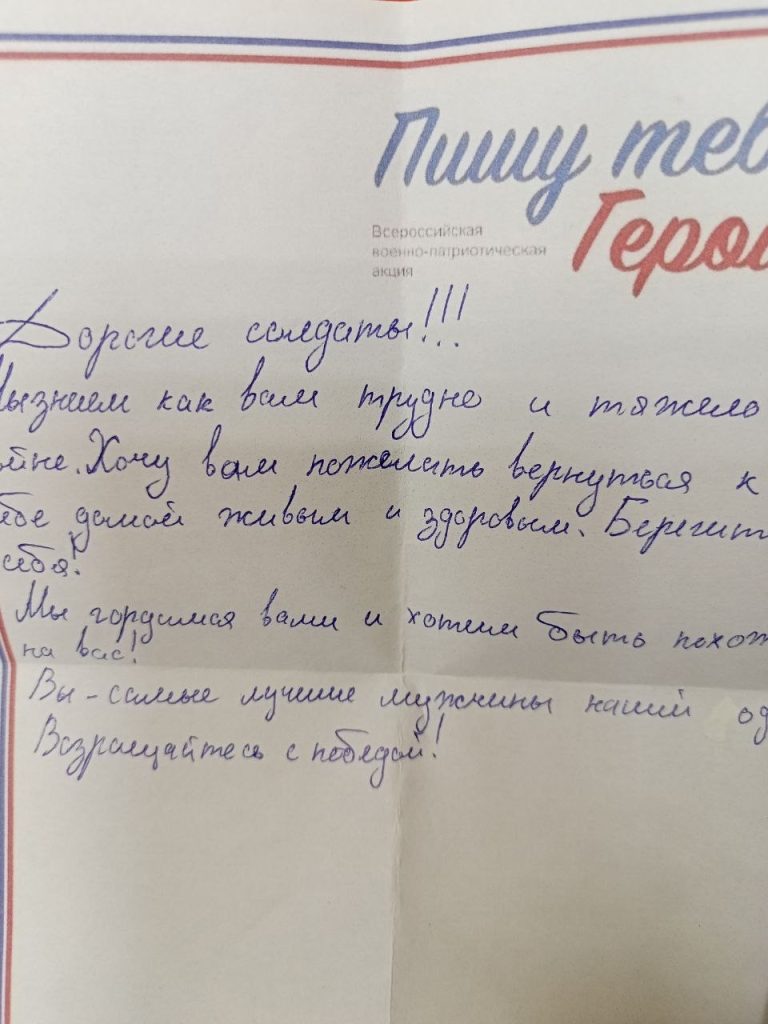 Пишу теб
Герой
Всероссийская
военно-патриотическая
акция
Дорогие солдаты!!!
Мызнаем как вам трудно и тяжело
ойне. Хочу вам пожелать вернуться к
ебе домой живым и здоровым. Берегит
себя!
Мы гордимся вами и хотим быть похож
на вас!
Вы - самые лучшие мужчины наший
Возращайтесь с победой!